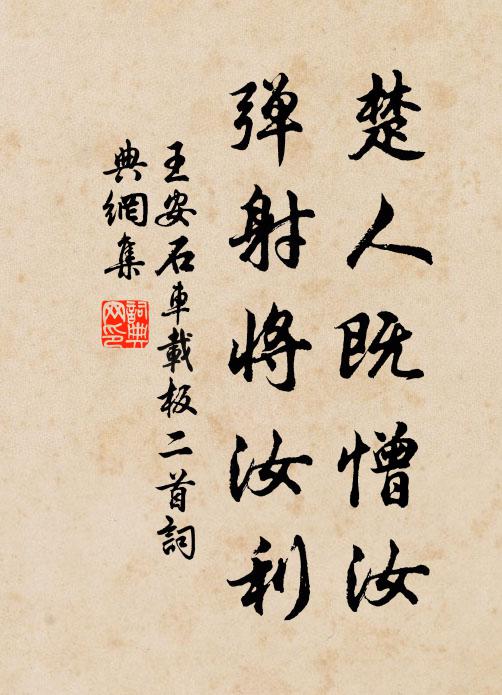 楚人既憎汝
弹射将汝利
王安石車載板二首詞
典網集
詞典
网印